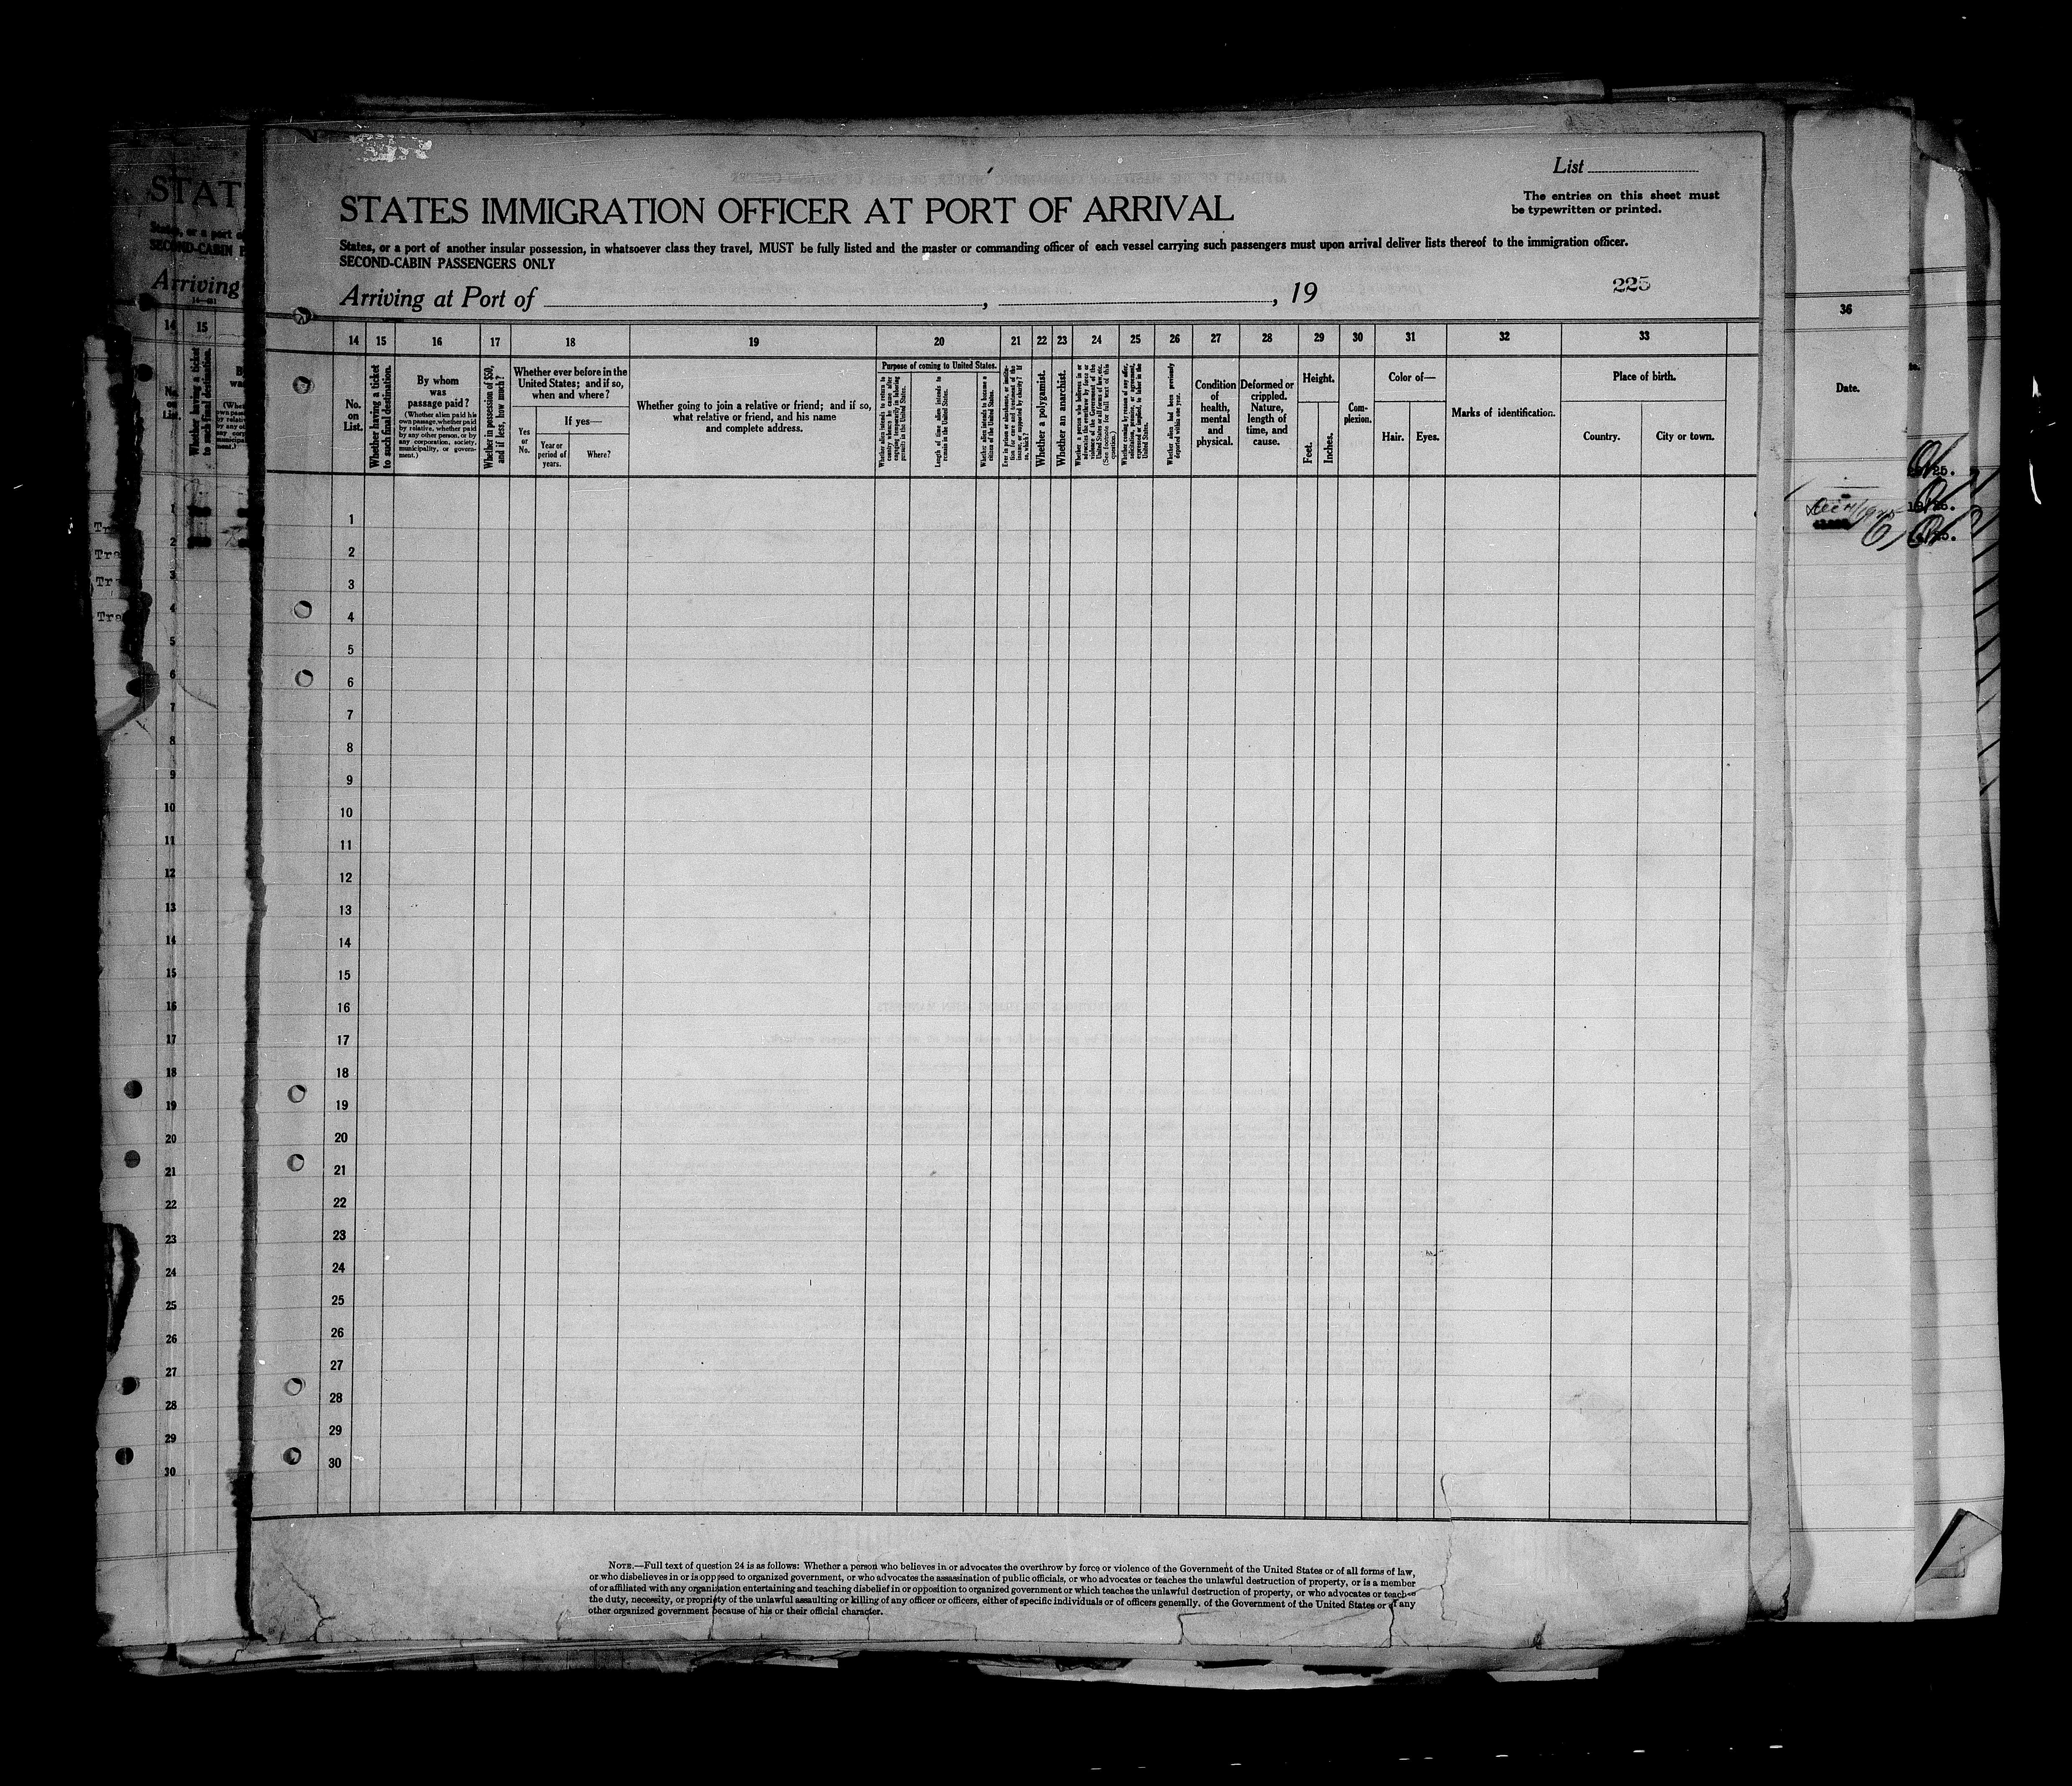 List
The entries on this sheet must
be typewritten or printed.
STATES IMMIGRATION OFFICER AT PORT OF ARRIVAL
States, or a port of another insular possession, in whatsoever class they travel, MUST be fully listed and the master or commanding officer of each vessel carrying such passengers must upon arrival deliver lists thereof to the immigration officer.
SECOND-CABIN PASSENGERS ONLY
Arriving at Port of , , 19
225
14 15 16 17 18 19 20 21 22 23 24 25 26 27 28 29 30 31 32 33
No.
on
List.
Whether having a ticket
to such final destination.
By whom
was
passage paid?
(Whether alien paid his
own passage, whether paid
by relative, whether paid
by any other person, or by
any corporation, society,
municipality, or govern-
ment.)
Whether in possession of $50,
and if less, how much?
Whether ever before in the
United States; and if so,
when and where?
Yes
or
No.
If yes—
Year or
period of
years.
Where?
Whether going to join a relative or friend; and if so,
what relative or friend, and his name
and complete address.
Purpose of coming to United States.
Whether alien intends to return to
country whence he came after
engaging temporarily in laboring
pursuits in the United States.
Length of time alien intends to
remain in the United States.
Whether alien intends to become a
citizen of the United States.
Ever in prison or almshouse, or institu-
tion for care and treatment of the
insane, or supported by charity? If
so, which?
Whether a polygamist.
Whether an anarchist.
Whether a person who believes in or
advocates the overthrow by force or
violence of the Government of the
United States or all forms of law, etc.
(See footnote for full text of this
question.)
Whether coming by reason of any offer,
solicitation, promise, or agreement,
expressed or implied, to labor in the
United States.
Whether alien had been previously
deported within one year.
Condition
of
health,
mental
and
physical.
Deformed or
crippled.
Nature,
length of
time, and
cause.
Height.
Feet.
Inches.
Com-
plexion.
Color of—
Hair.
Eyes.
Marks of identification.
Place of birth.
Country.
City or town.
1
2
3
4
5
6
7
8
9
10
11
12
13
14
15
16
17
18
19
20
21
22
23
24
25
26
27
28
29
30
NOTE.—Full text of question 24 is as follows: Whether a person who believes in or advocates the overthrow by force or violence of the Government of the United States or of all forms of law,
or who disbelieves in or is opposed to organized government, or who advocates the assassination of public officials, or who advocates or teaches the unlawful destruction of property, or is a member
of or affiliated with any organization entertaining and teaching disbelief in or opposition to organized government or which teaches the unlawful destruction of property, or who advocates or teaches
the duty, necessity, or propriety of the unlawful assaulting or killing of any officer or officers, either of specific individuals or of officers generally, of the Government of the United States or of any
other organized government because of his or their official character.
STAT
SECOND-CABIN P
Arriving
14 15
No.
on
List.
Whether having a ticket
to such final destination.
Tra
Tra
1
2
3
4
5
6
7
8
9
10
11
12
13
14
15
16
17
18
19
20
21
22
23
24
25
26
27
28
29
30
36
Date.